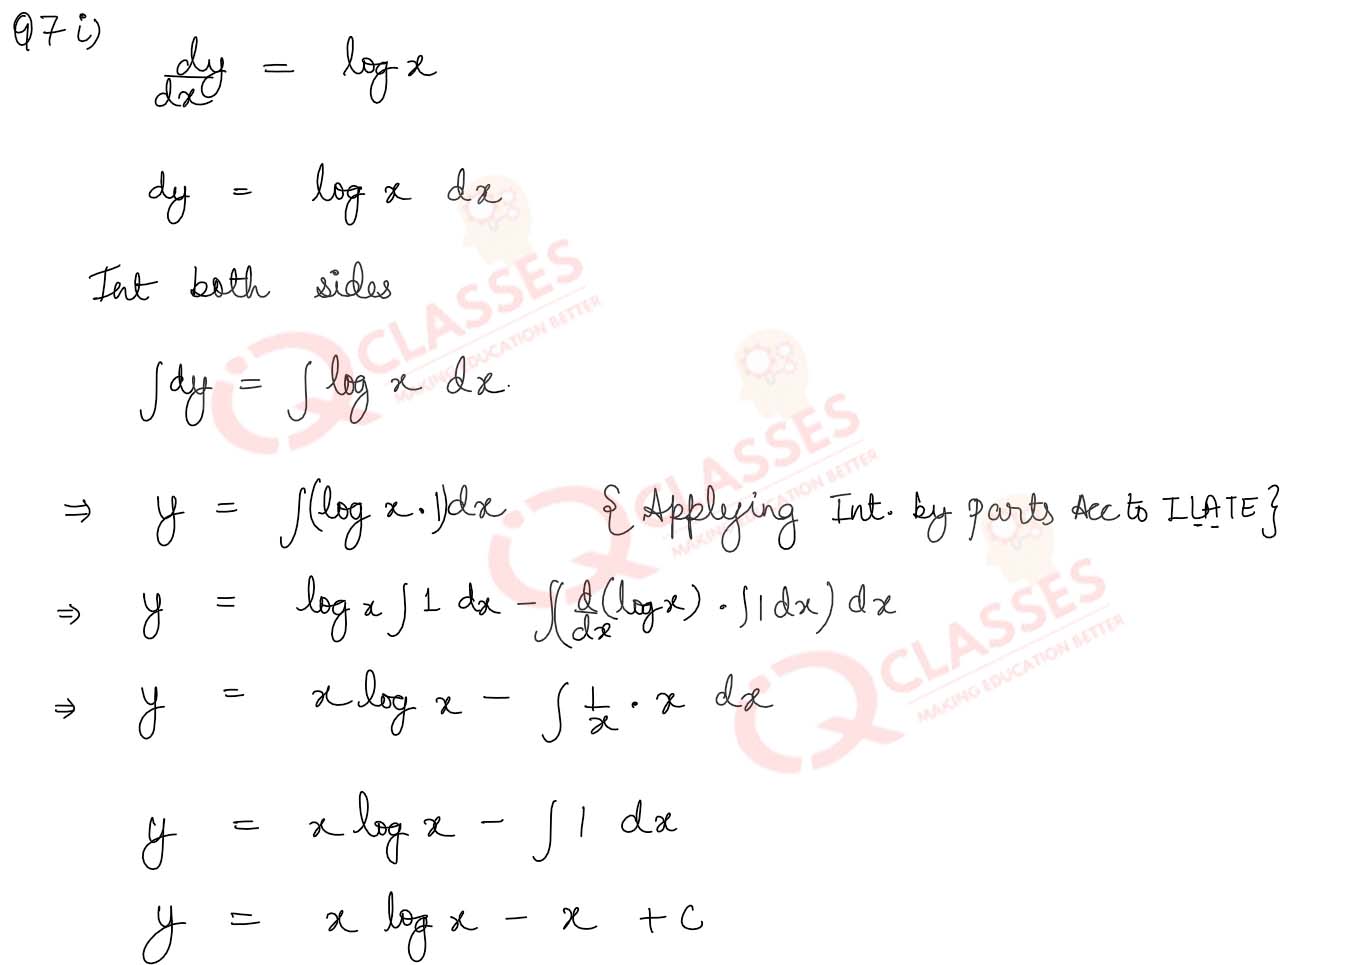 Q7 i)
dy/dx = log x
dy = log x dx
Int both sides
∫dy = ∫ log x dx.
⇒ y = ∫(log x · 1)dx { Applying Int. by parts Acc to ILATE}
⇒ y = log x ∫ 1 dx − ∫(d/dx (log x) · ∫1 dx) dx
⇒ y = x log x − ∫ 1/x · x dx
y = x log x − ∫ 1 dx
y = x log x − x + c
iQ CLASSES
MAKING EDUCATION BETTER
iQ CLASSES
MAKING EDUCATION BETTER
iQ CLASSES
MAKING EDUCATION BETTER